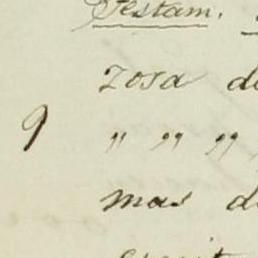 Testam.
zosa d
9 " " "
mas d